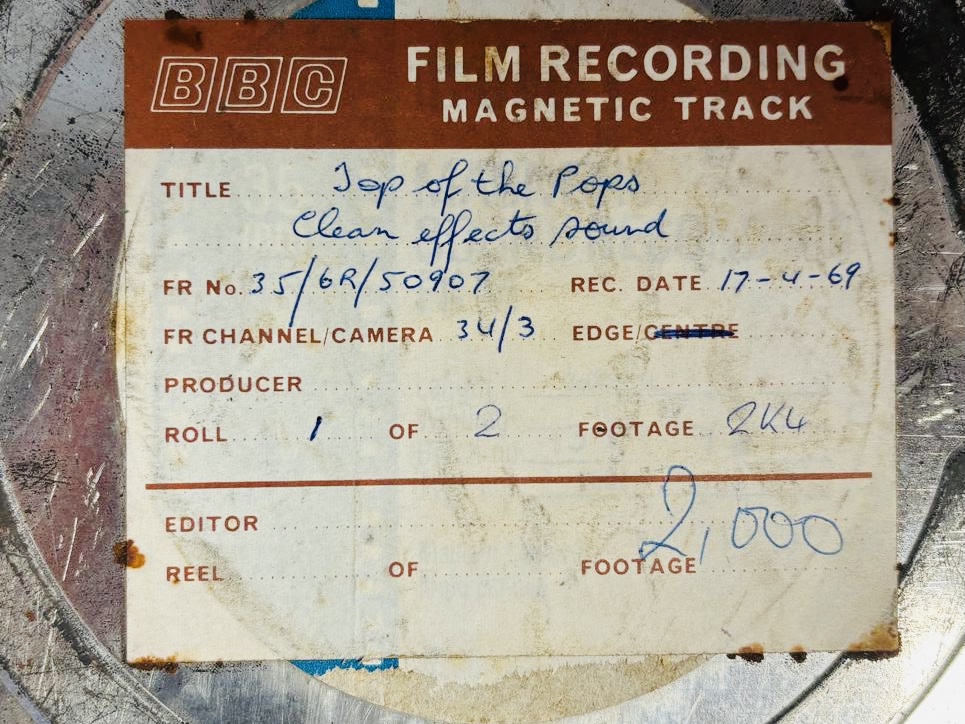 BBC FILM RECORDING
MAGNETIC TRACK
TITLE Top of the Pops
Clean effects sound
FR No. 35/6R/50907 REC. DATE 17-4-69
FR CHANNEL/CAMERA 34/3 EDGE/CENTRE
PRODUCER
ROLL 1 OF 2 FOOTAGE 2K4
EDITOR 2,000
REEL OF FOOTAGE